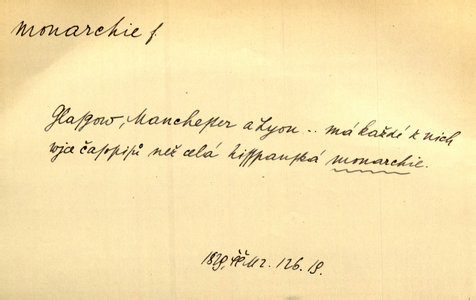 monarchie f.
Glasgow, Manchester a Lyon .. má každé z nich
wjce časopisů než celá hisspanská monarchie.
1829, ČČM 2. 126. 19.